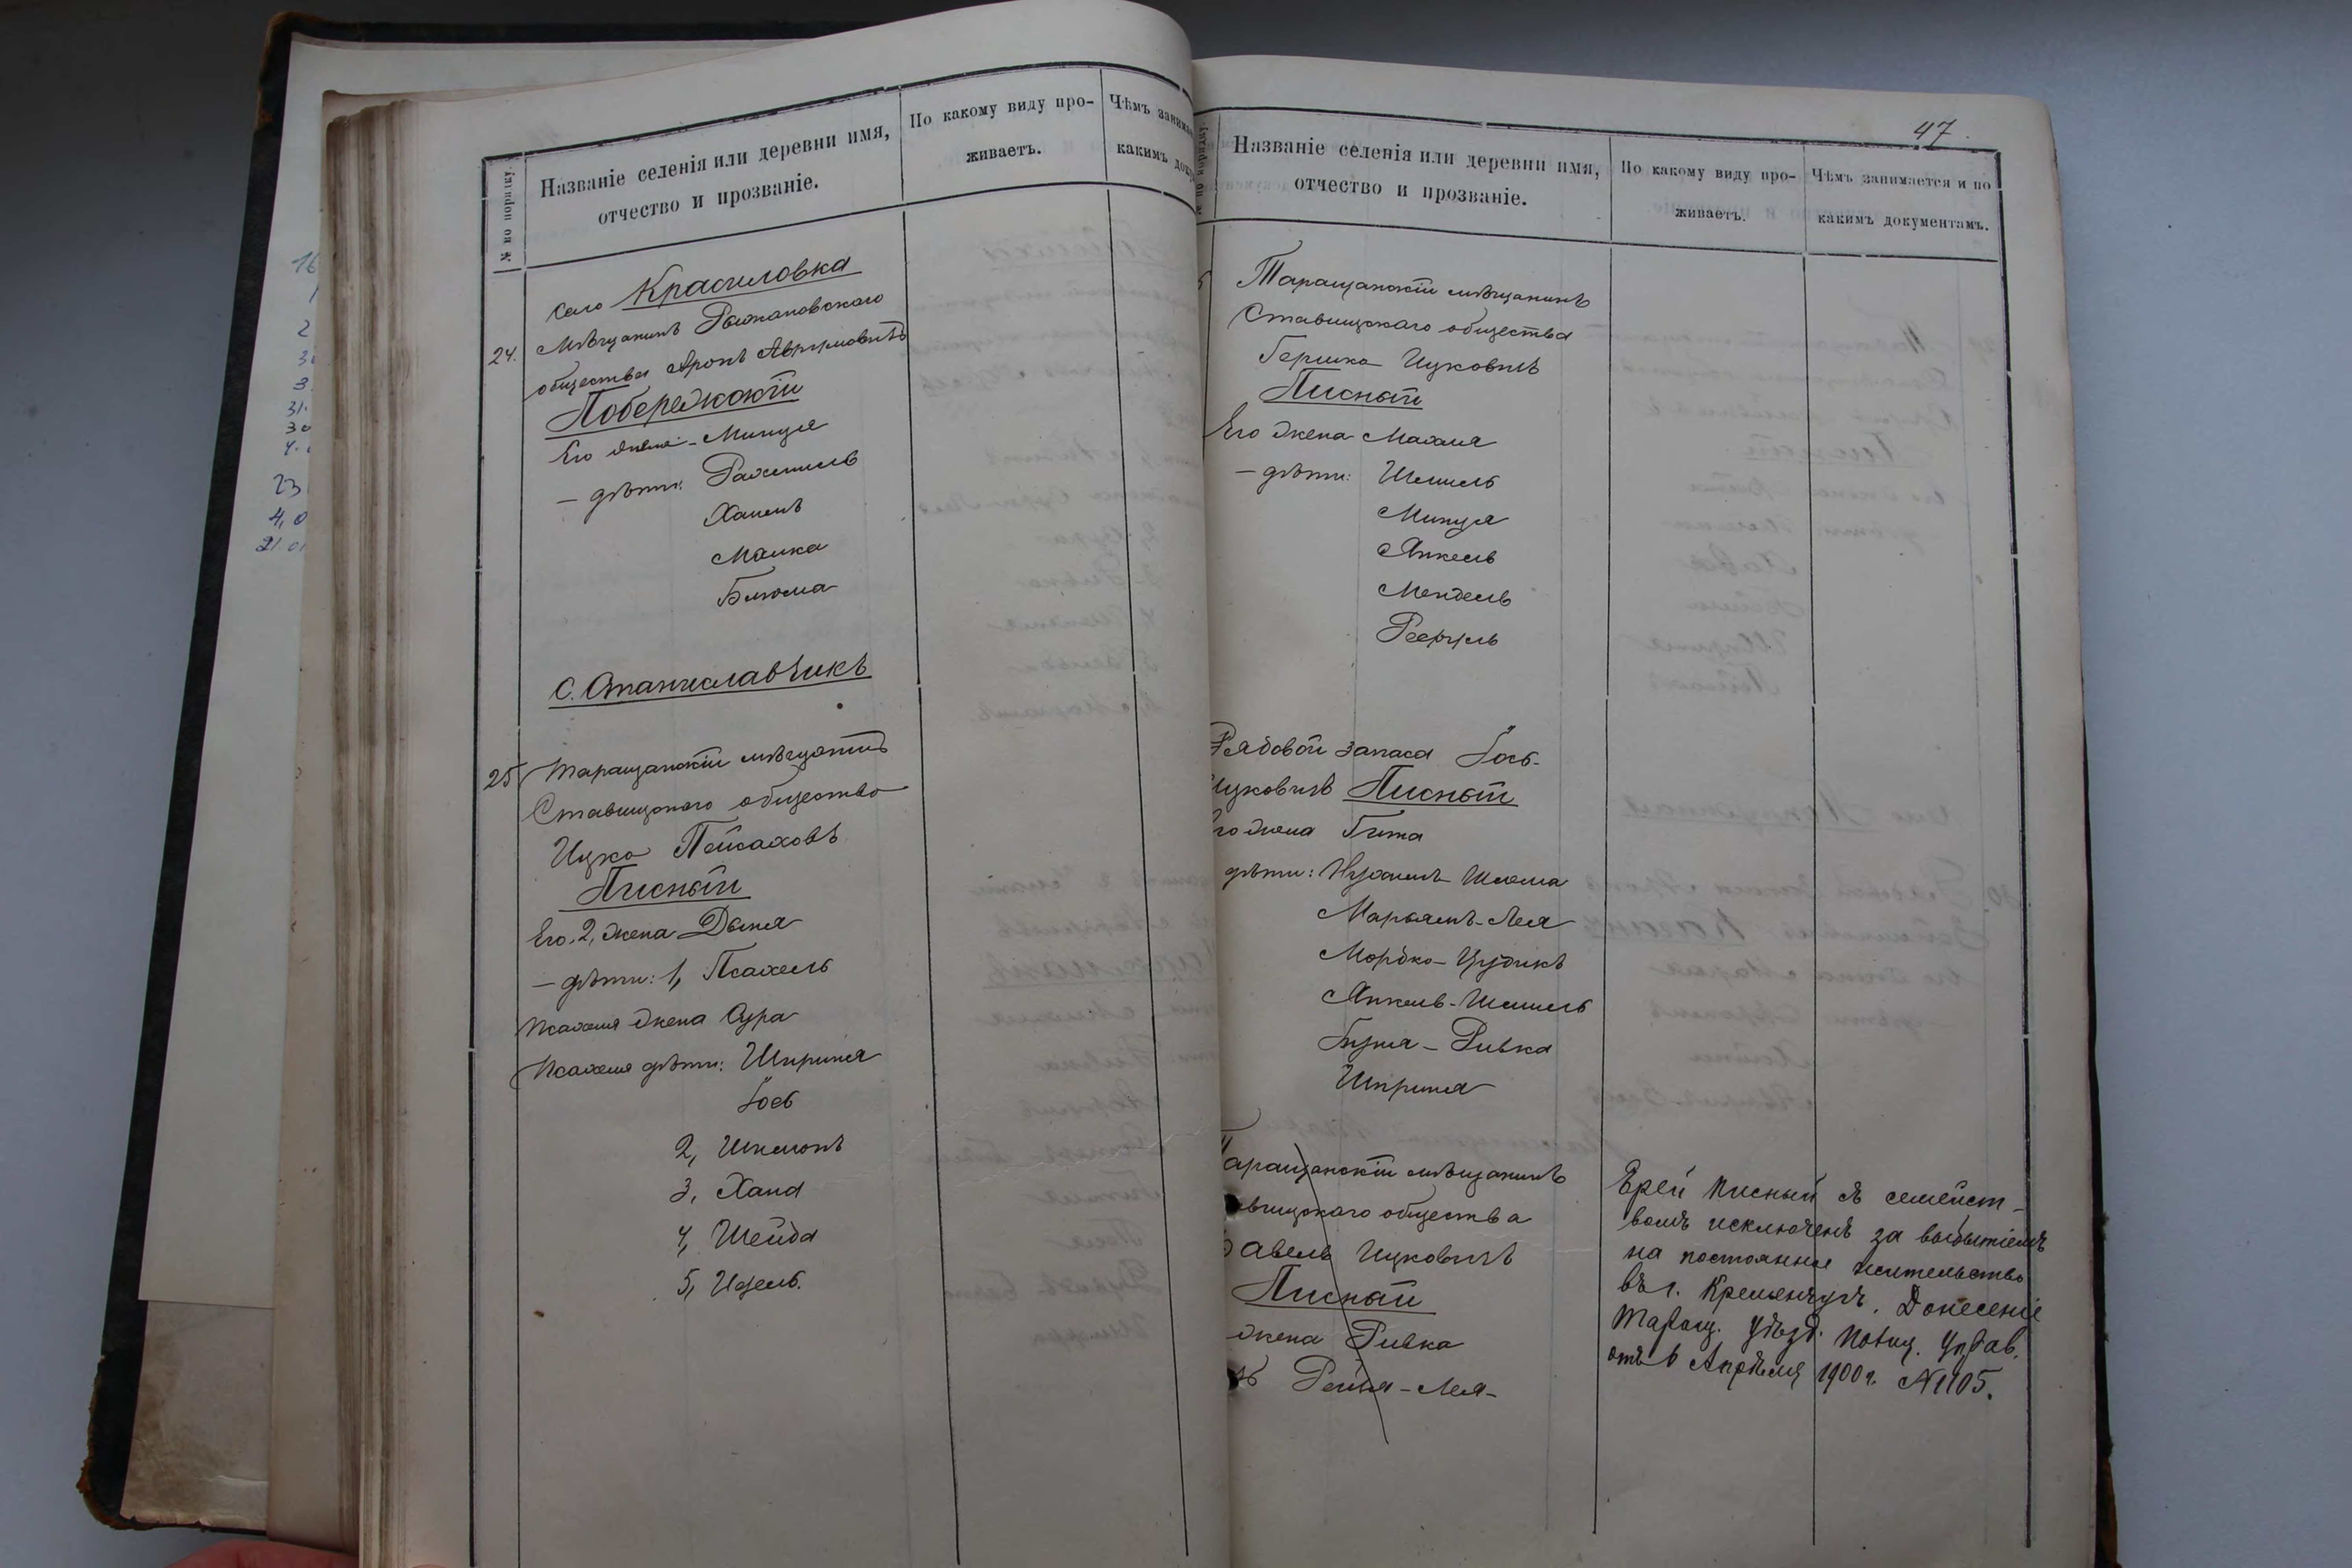 № по порядку
Названіе селенія или деревни имя,
отчество и прозваніе.
По какому виду про-
живаетъ.
Чѣмъ занима
какимъ доку
Село Красиловка
24. Мѣщанинъ Рыжановскаго
общества Аронъ Аврумовичъ
Побережскій
Его жена - Минця
— дѣти: Рахмиль
Хаимъ
Малка
Блюма
С. Станиславчикъ
25 Таращанскій мѣщанинъ
Ставищскаго общества
Ицко Пейсаховъ
Писный
Его 2, жена Двыня
— дѣти: 1, Псахель
Псахеля жена Сура
Псахеля дѣти: Шпринця
Іось
2, Шлемонъ
3, Хана
4, Шейда
5, Идель.
47
Названіе селенія или деревни имя,
отчество и прозваніе.
По какому виду про-
живаетъ.
Чѣмъ занимается и по
какимъ документамъ.
Таращанскій мѣщанинъ
Ставищскаго общества
Гершко Ицковичъ
Писный
Его жена Махля
— дѣти: Шмиль
Минця
Янкель
Мендель
Рядовой запаса Іось
Ицковичъ Писный
Его жена Гитя
дѣти: Нухимъ Шлема
Марьямъ-Лея
Мордко-Цудикъ
Янкель-Шмиль
Бруня - Ривка
Шпринця
Таращанскій мѣщанинъ
авищскаго общества
авель Ицковичъ
Писный
жена Ривка
Рейзя - Лея
Еврей Писный съ семейст-
вомъ исключенъ за выбытіемъ
на постоянное жительство
въ г. Кременчугъ. Донесеніе
Таращ. уѣзд. Полиц. Управ.
отъ 6 Апрѣля 1900 г. № 1105.